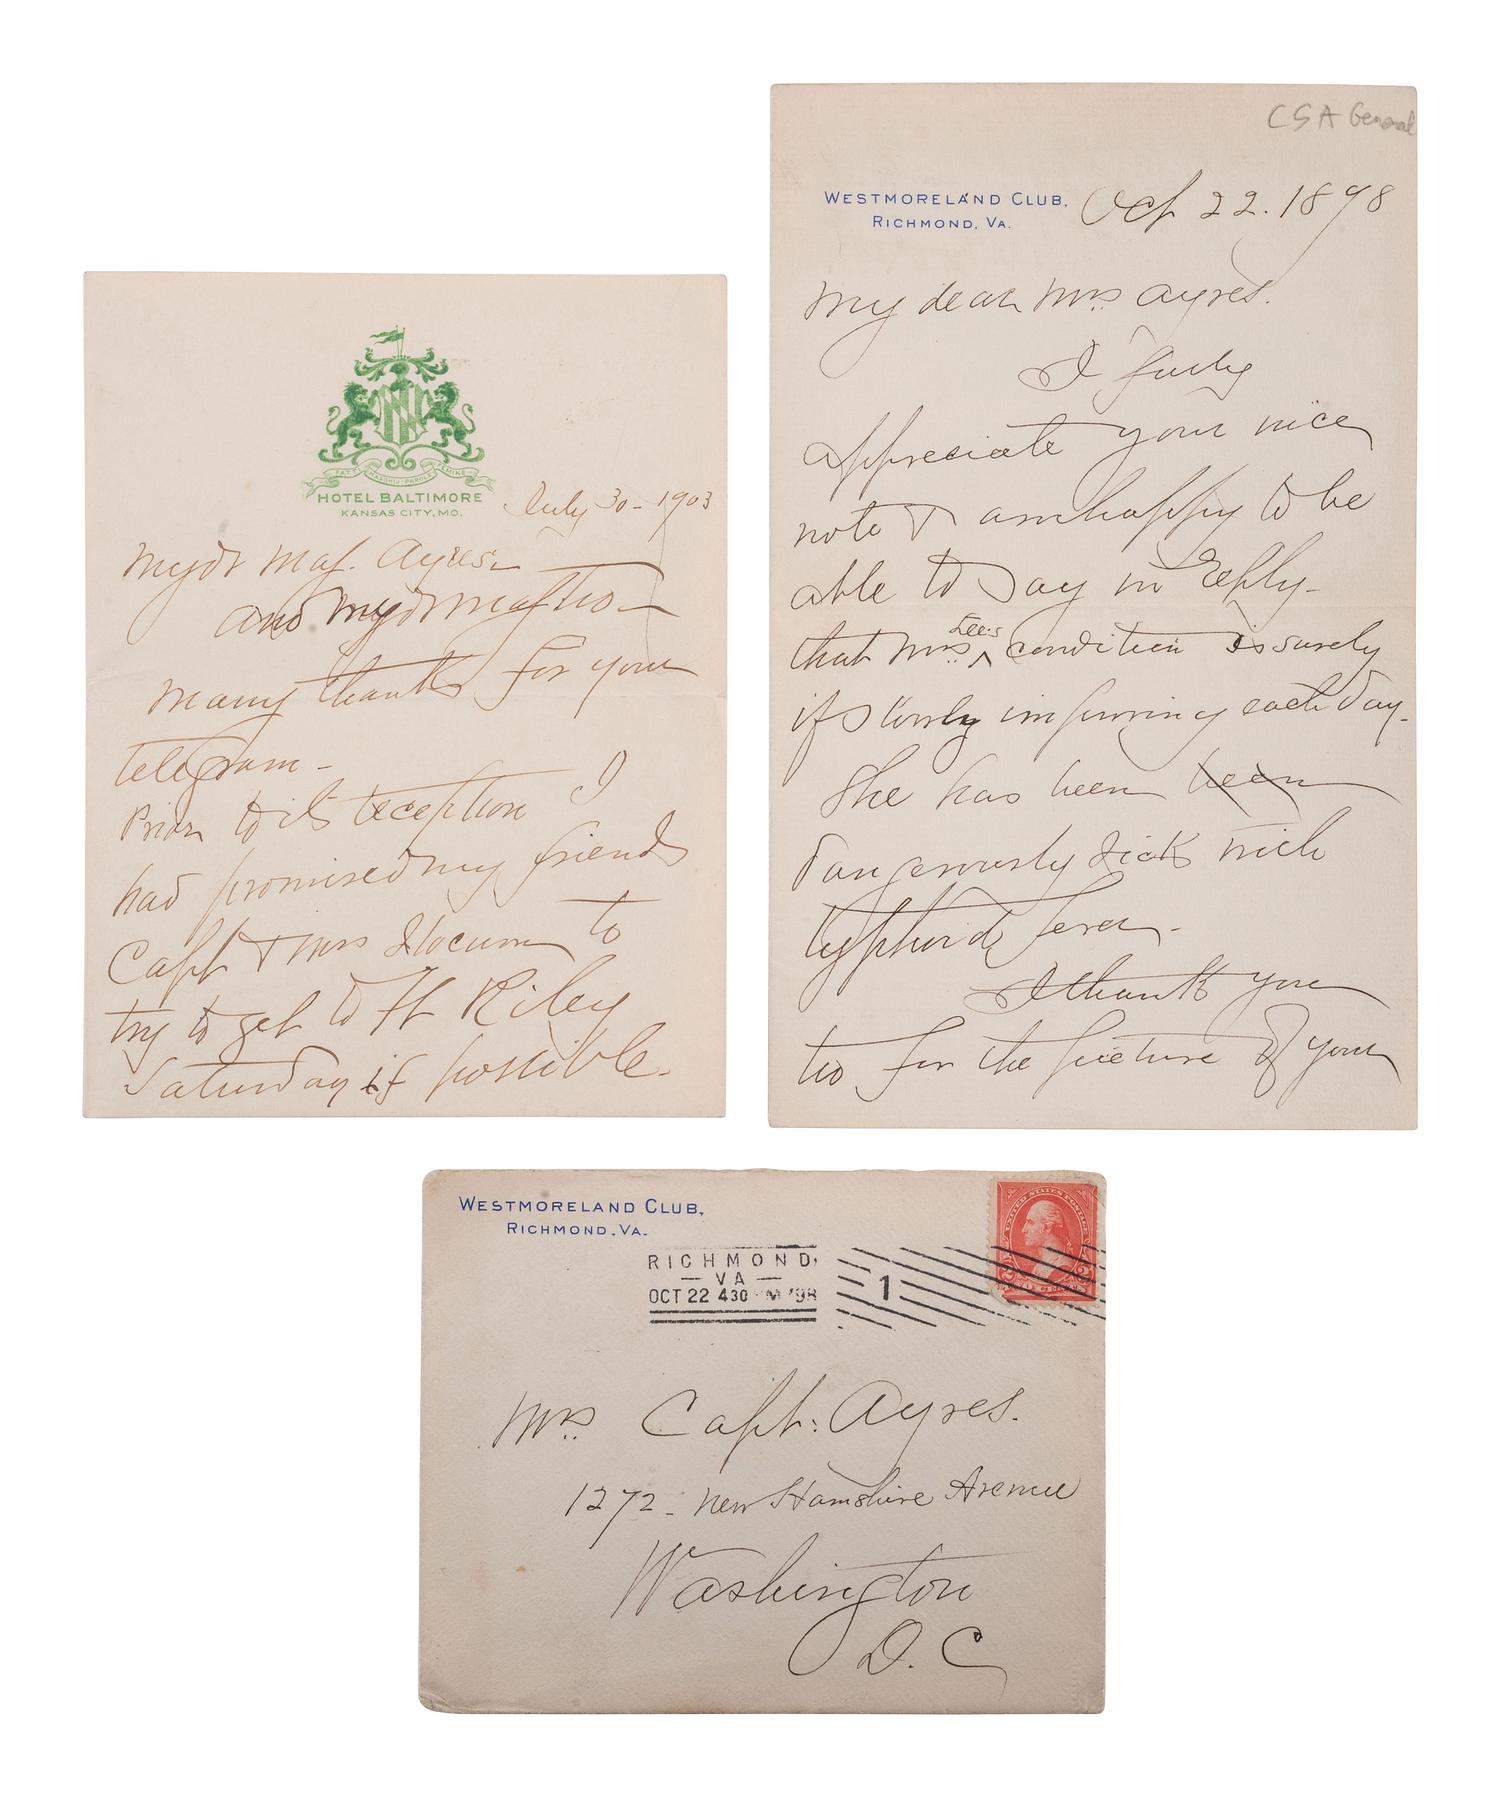 FATTI MASCHII PAROLE FEMINE
HOTEL BALTIMORE
KANSAS CITY, MO.
July 30 - 1903
My dr Maj. Ayres -
and my dr Maj too -
many thanks for your
telegram -
Prior to its reception I
had promised my friends
Capt & Mrs Slocum to
try to get to Ft Riley
Saturday if possible.
CSA General
WESTMORELAND CLUB,
RICHMOND, VA.
Oct 22. 1898
My dear Mrs Ayres.
I fully
appreciate your nice
note & am happy to be
able to say in reply -
that Mrs Lee's condition is surely
if slowly improving each day -
She has been been
dangerously sick with
typhoid fever -
I thank you
too for the picture of your
WESTMORELAND CLUB,
RICHMOND, VA.
RICHMOND,
VA
OCT 22 430 M '98
1
UNITED STATES POSTAGE
2 2
TWO CENTS
Mrs Capt: Ayres.
1272 - New Hamshire Avenue
Washington
D. C